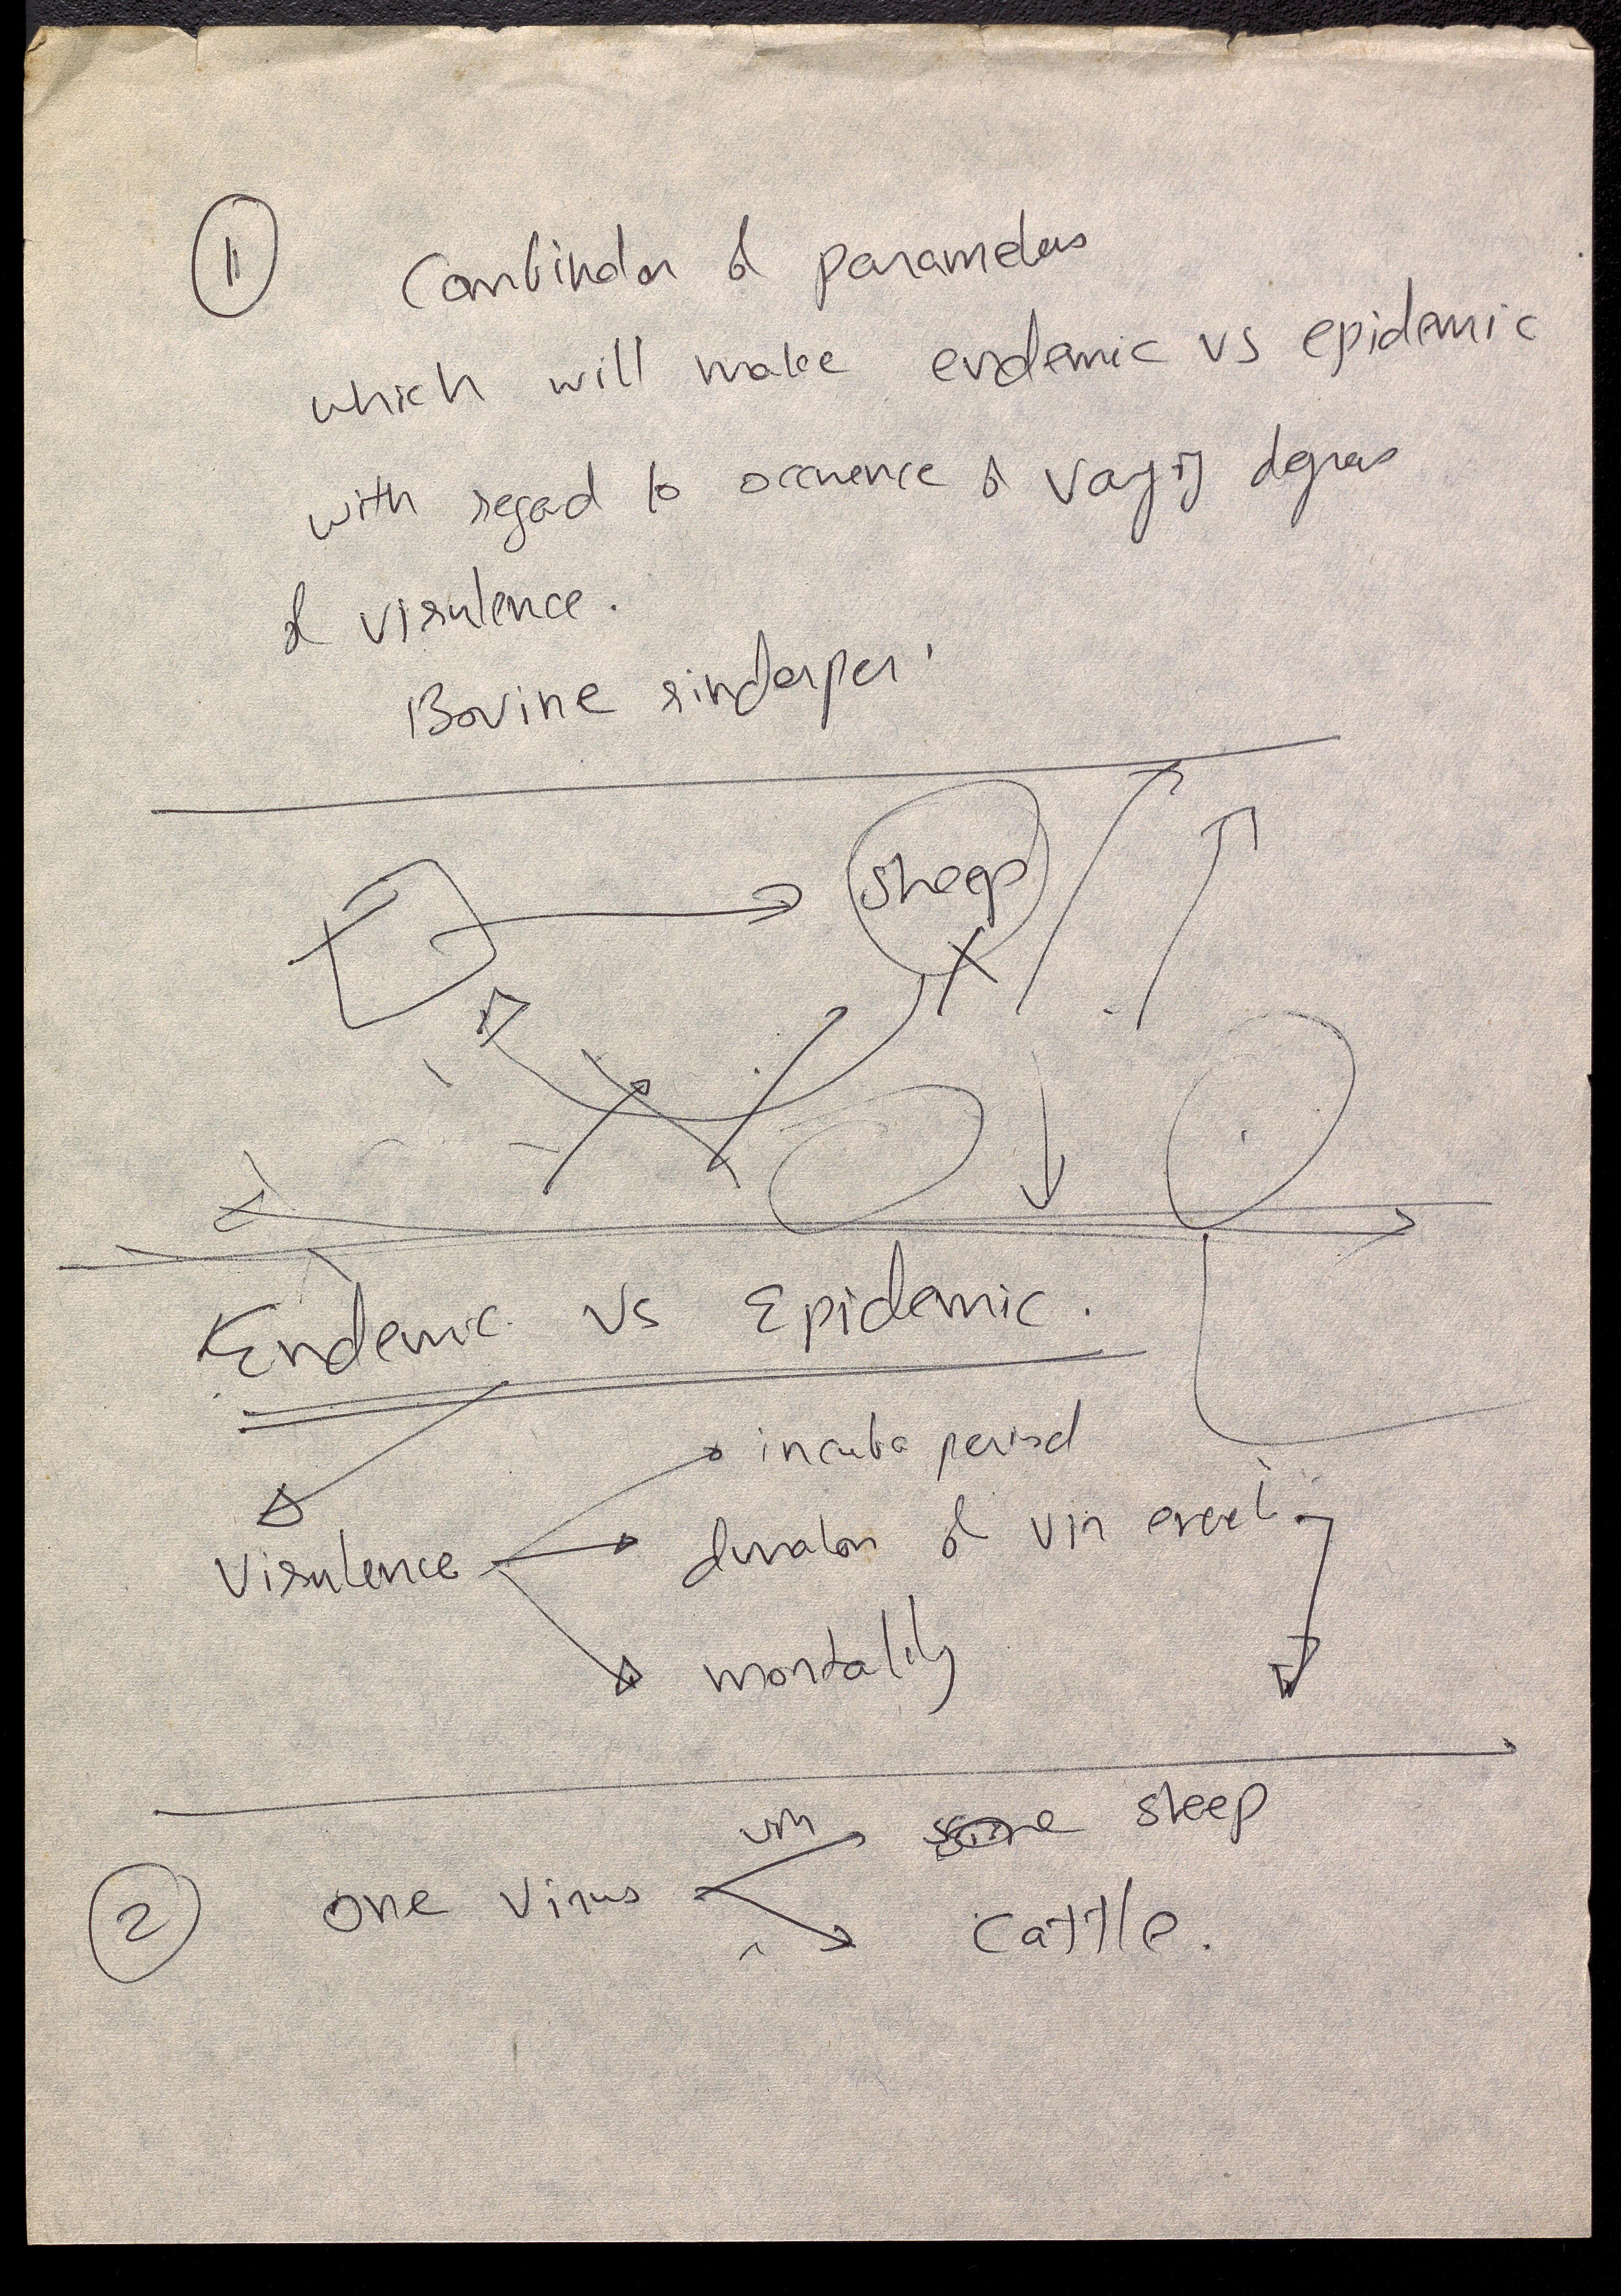 1
Combination of parameters
which will make endemic vs epidemic
with regard to occurence of varying degrees
of virulence.
Bovine rinderper
sheep
Endemic vs Epidemic.
incuba period
duration of vir excreti
Virulence
mortality
sheep
2 one virus
cattle.